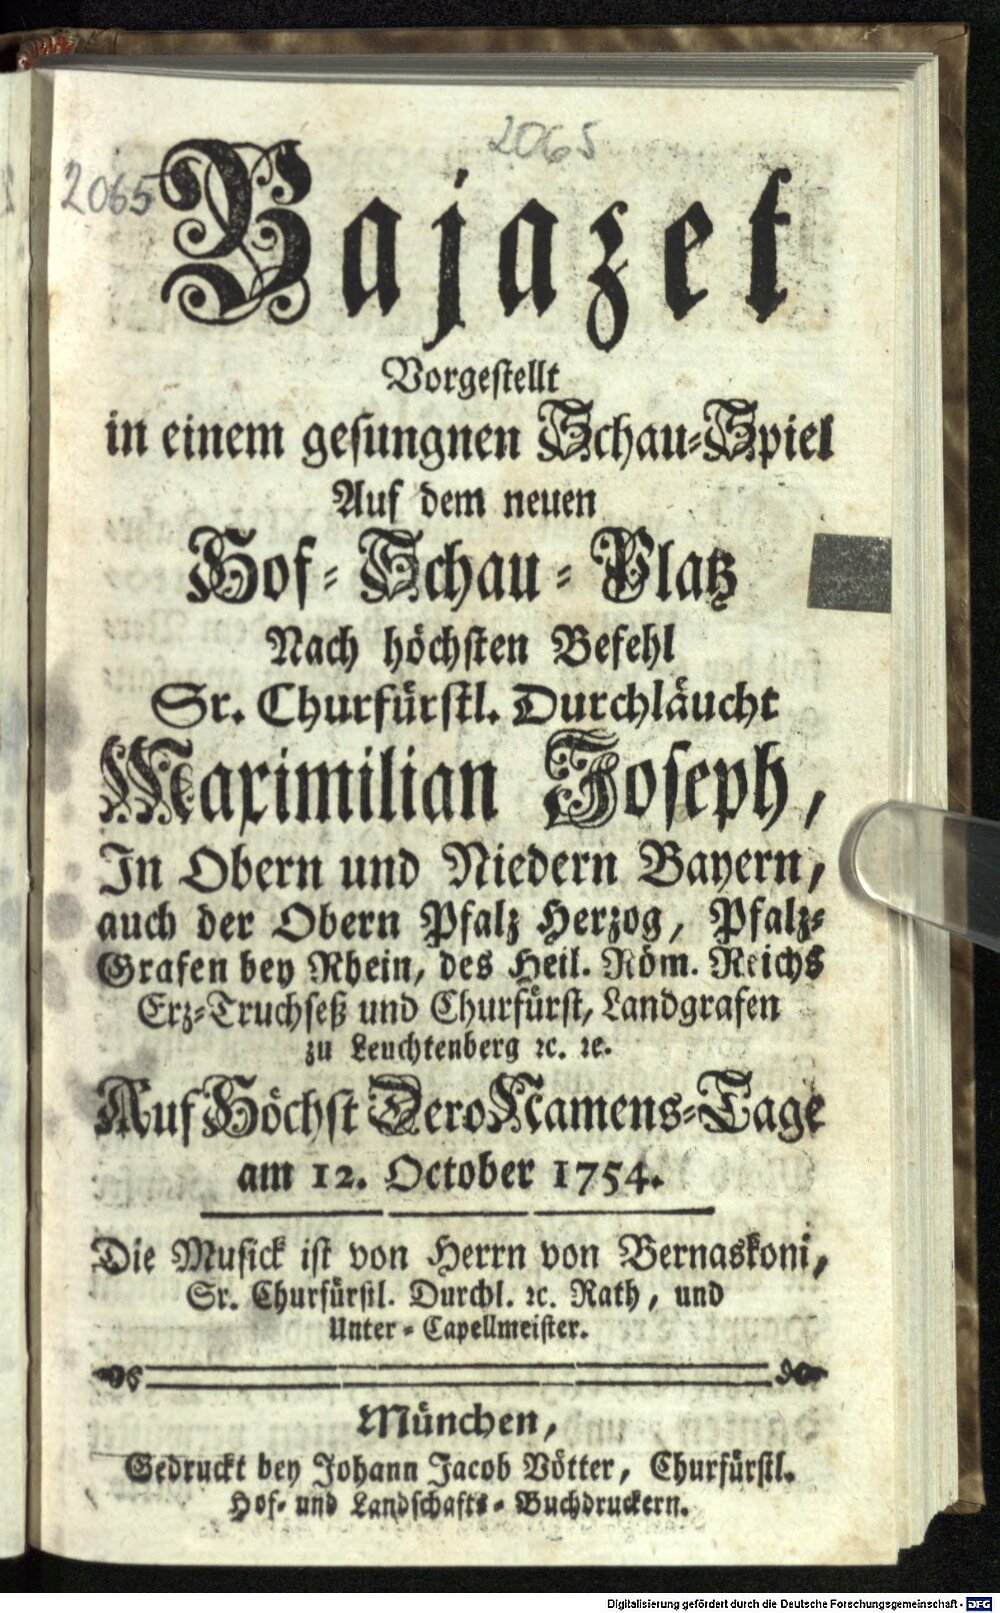 2065
2065
Bajazet
Vorgestellt
in einem gesungnen Schau-Spiel
Auf dem neuen
Hof-Schau-Platz
Nach höchsten Befehl
Sr. Churfürstl. Durchläucht
Maximilian Joseph,
In Obern und Niedern Bayern,
auch der Obern Pfalz Herzog, Pfalz-
Grafen bey Rhein, des Heil. Röm. Reichs
Erz-Truchseß und Churfürst, Landgrafen
zu Leuchtenberg ꝛc. ꝛc.
Auf Höchst Dero Namens-Tage
am 12. October 1754.
Die Musick ist von Herrn von Bernaskoni,
Sr. Churfürstl. Durchl. ꝛc. Rath, und
Unter-Capellmeister.
München,
Gedruckt bey Johann Jacob Vötter, Churfürstl.
Hof- und Landschafts-Buchdruckern.
Digitalisierung gefördert durch die Deutsche Forschungsgemeinschaft - DFG